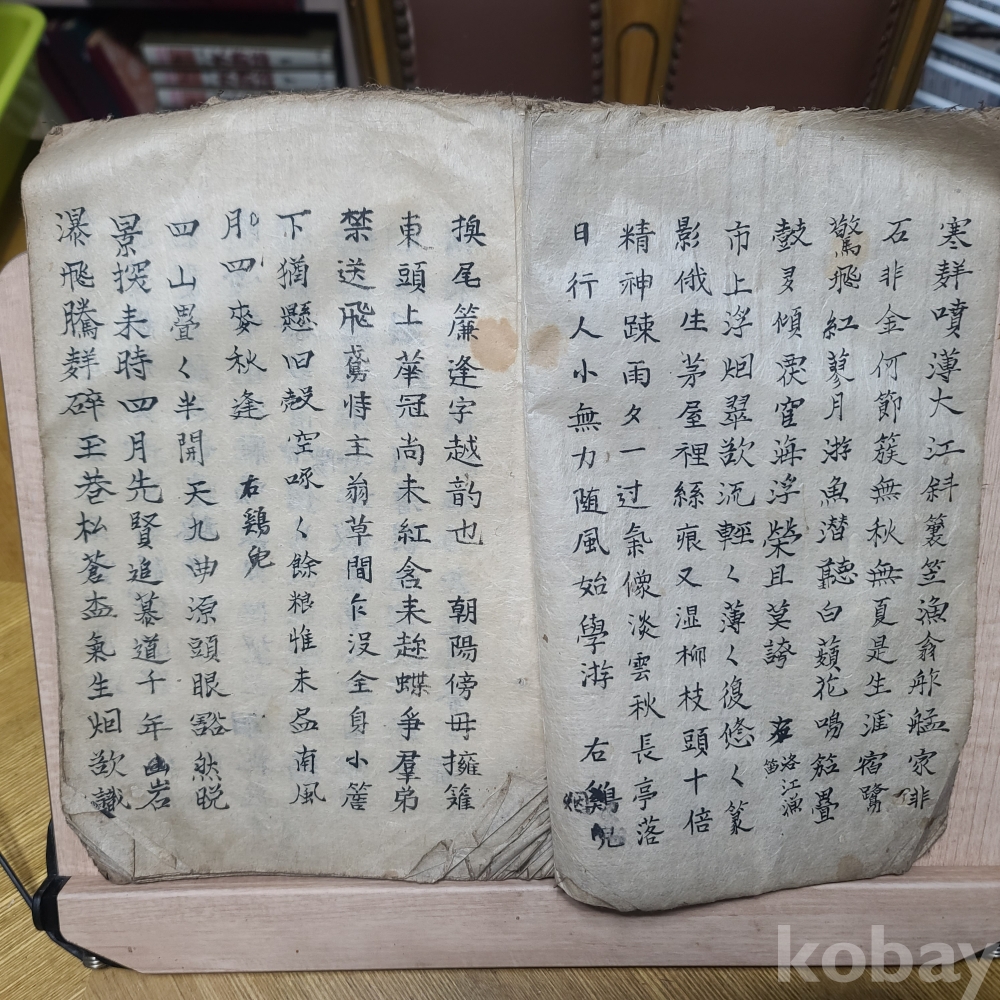 寒聲噴薄大江斜蓑笠漁翁舴艋家非
石非金何節簇無秋無夏是生涯宿鷺
驚飛紅蓼月游魚潜聽白蘋花鳴笳疊
鼓多傾覆宦海浮榮且莫誇 右洛江漁笛
市上浮烟翠欲流輕〻薄〻復悠〻篆
影俄生茅屋裡絲痕又湿柳枝頭十倍
精神踈雨夕一过氣像淡雲秋長亭落
日行人小無力随風始學游 右烟
換尾簾逢字越韵也 朝陽傍母擁籬
東頭上華冠尚未紅含来趂蝶爭羣弟
禁送飛鳶恃主翁草間乍没全身小篱
下猶懸旧殻空啄〻餘粮惟未足南風
月四麥秋逢 右鷄兒
四山疊〻半開天九曲源頭眼豁然晩
景揬来時四月先賢追慕道千年幽岩
瀑飛騰聲碎玉巷松蒼盃氣生烟欲識
kobay